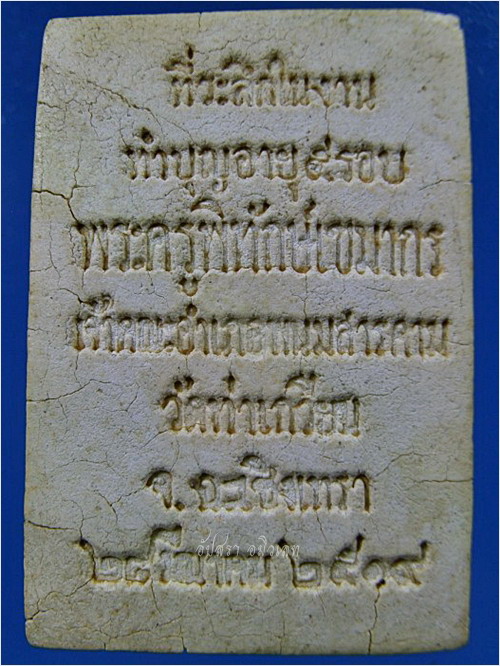 ที่ระลึกในงาน
ทำบุญอายุ ๕ รอบ
พระครูพิทักษ์เขมากร
เจ้าคณะอำเภอพนมสารคาม
วัดท่าเกวียน
จ. ฉะเชิงเทรา
๒๕๑๙